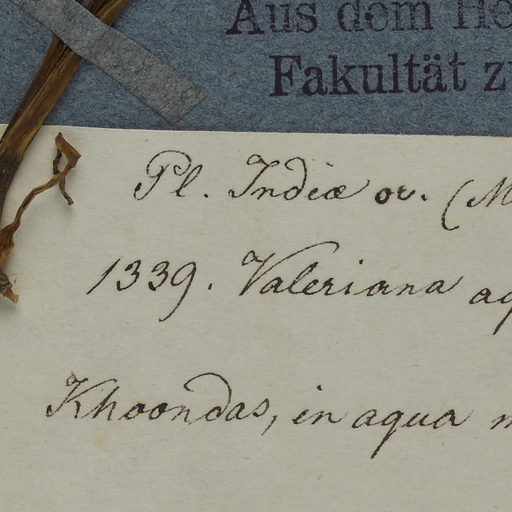 Aus dem He
Fakultät z
Pl. Indiæ or. (M
1339. Valeriana aq
Khoondas, in aqua m